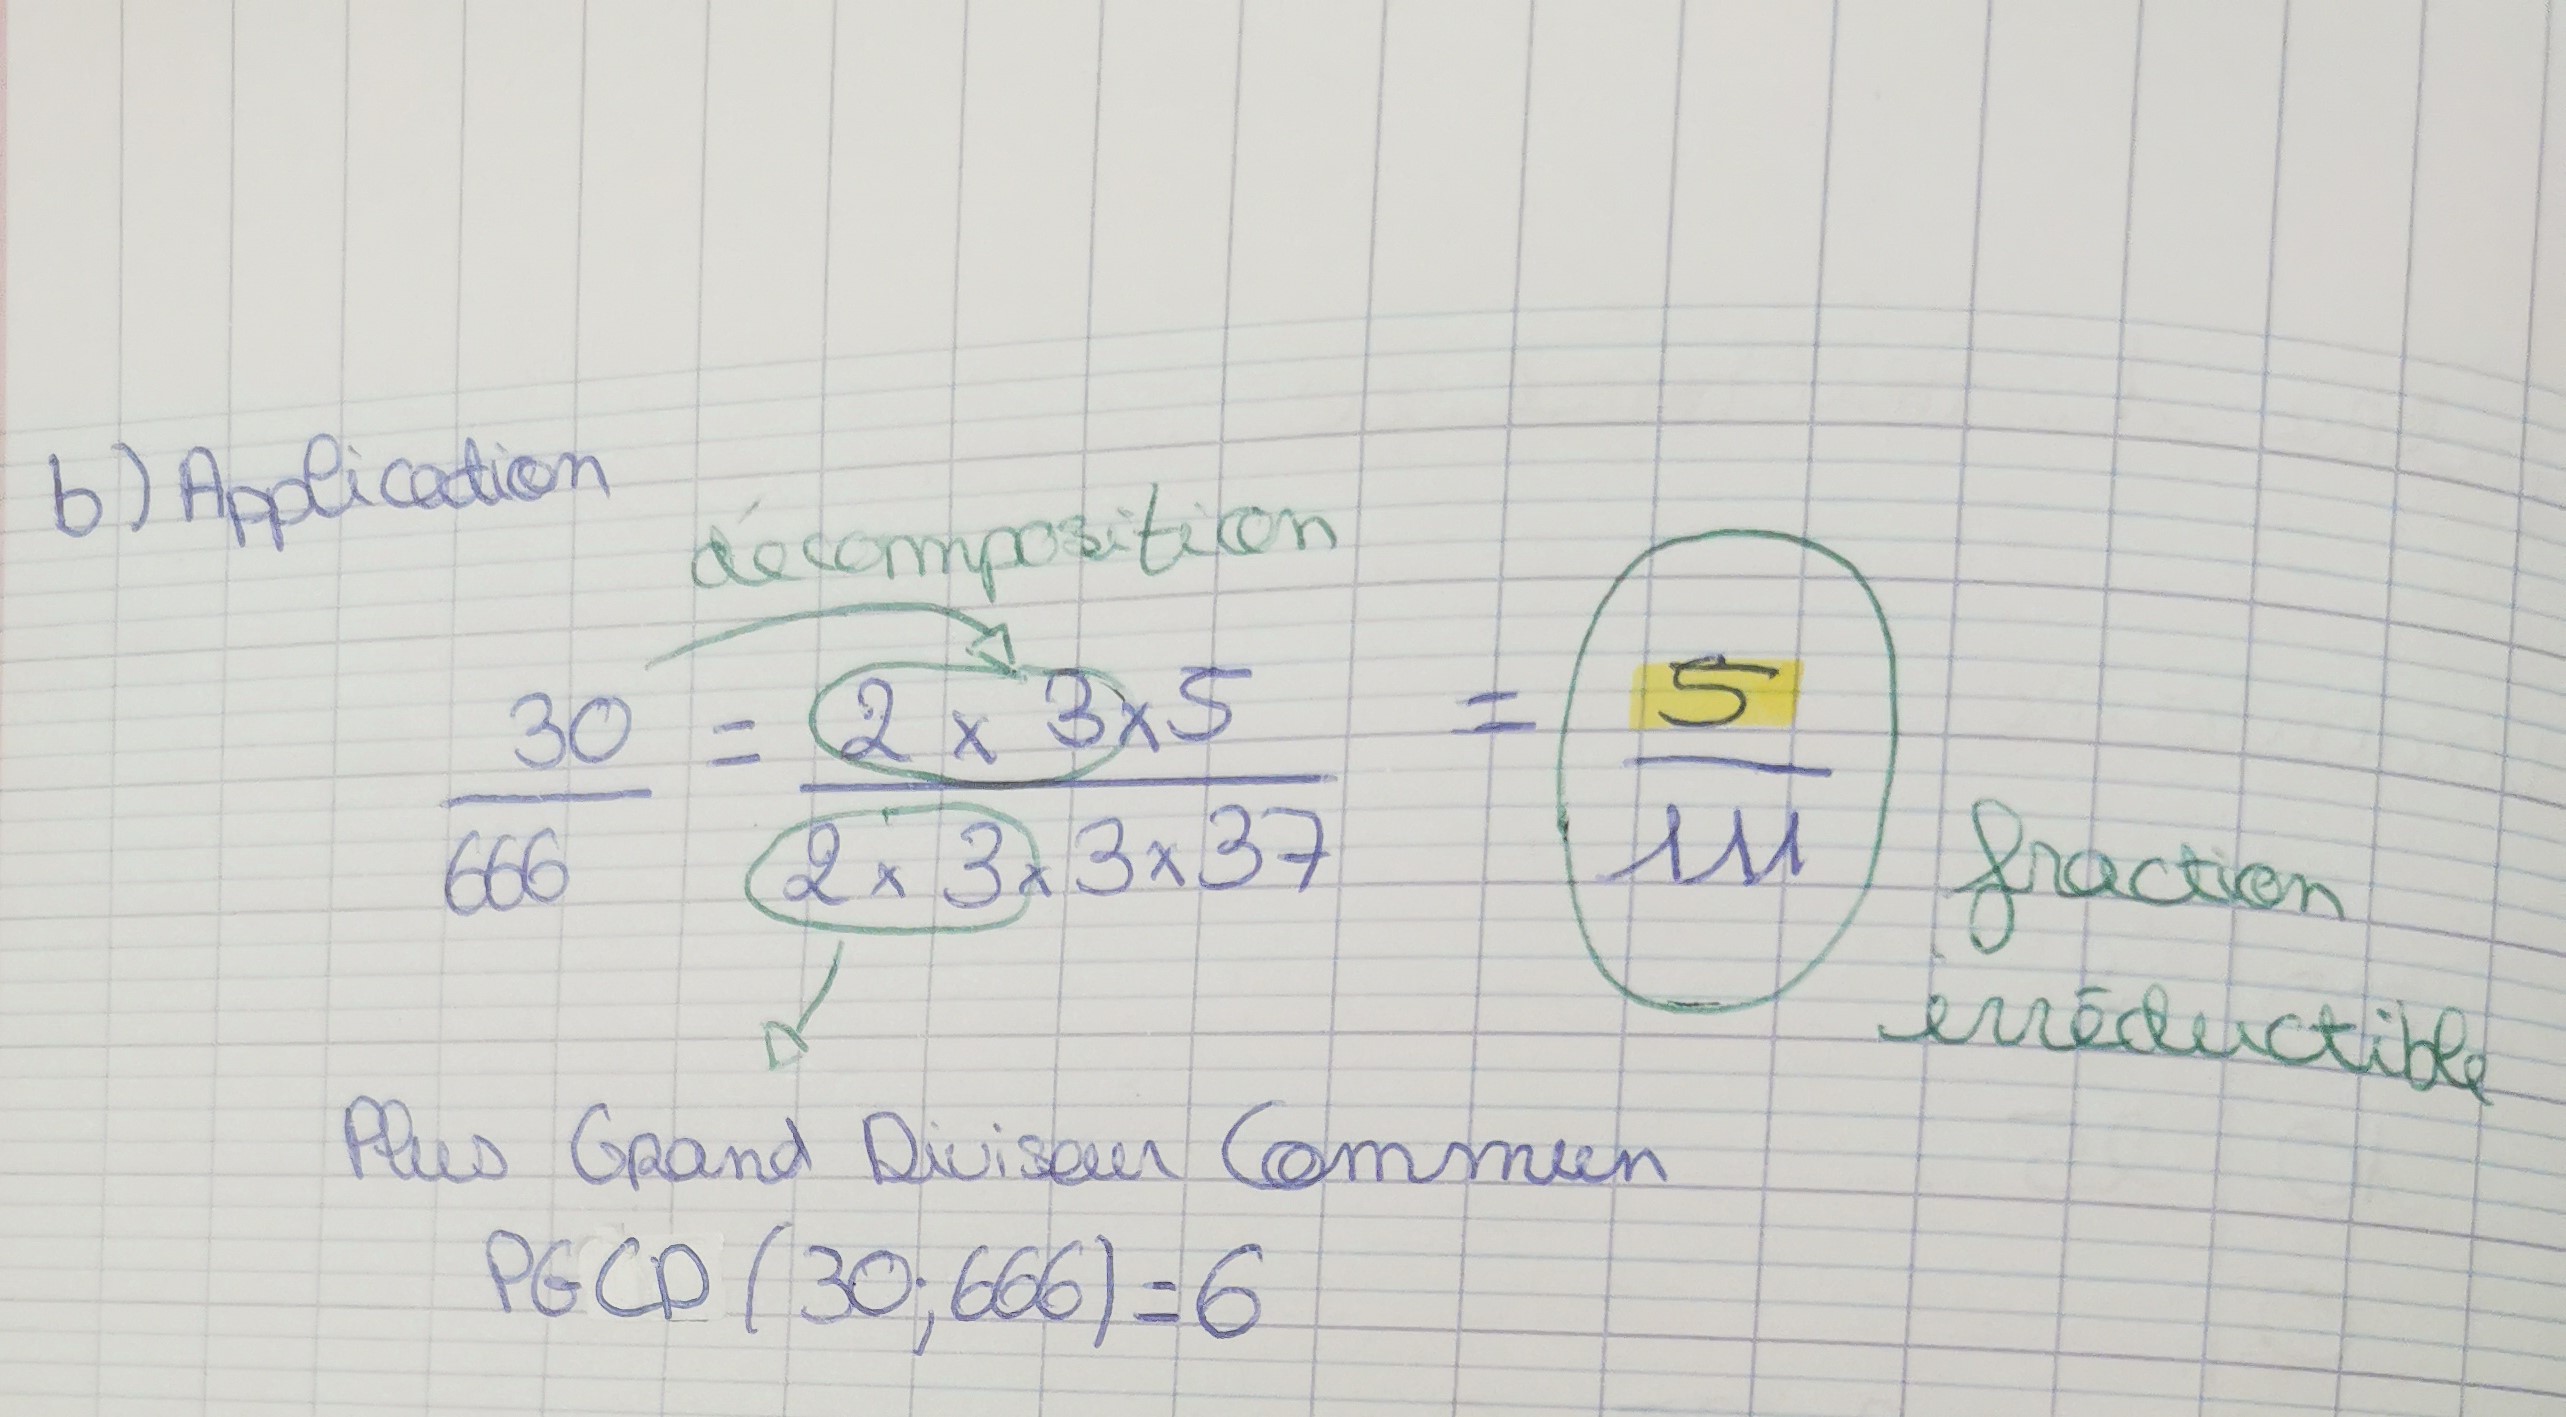 b) Application
décomposition
30/666 = 2 x 3 x 5 / 2 x 3 x 3 x 37 = 5/111
fraction
irréductible
Plus Grand Diviseur Commun
PGCD (30; 666) = 6